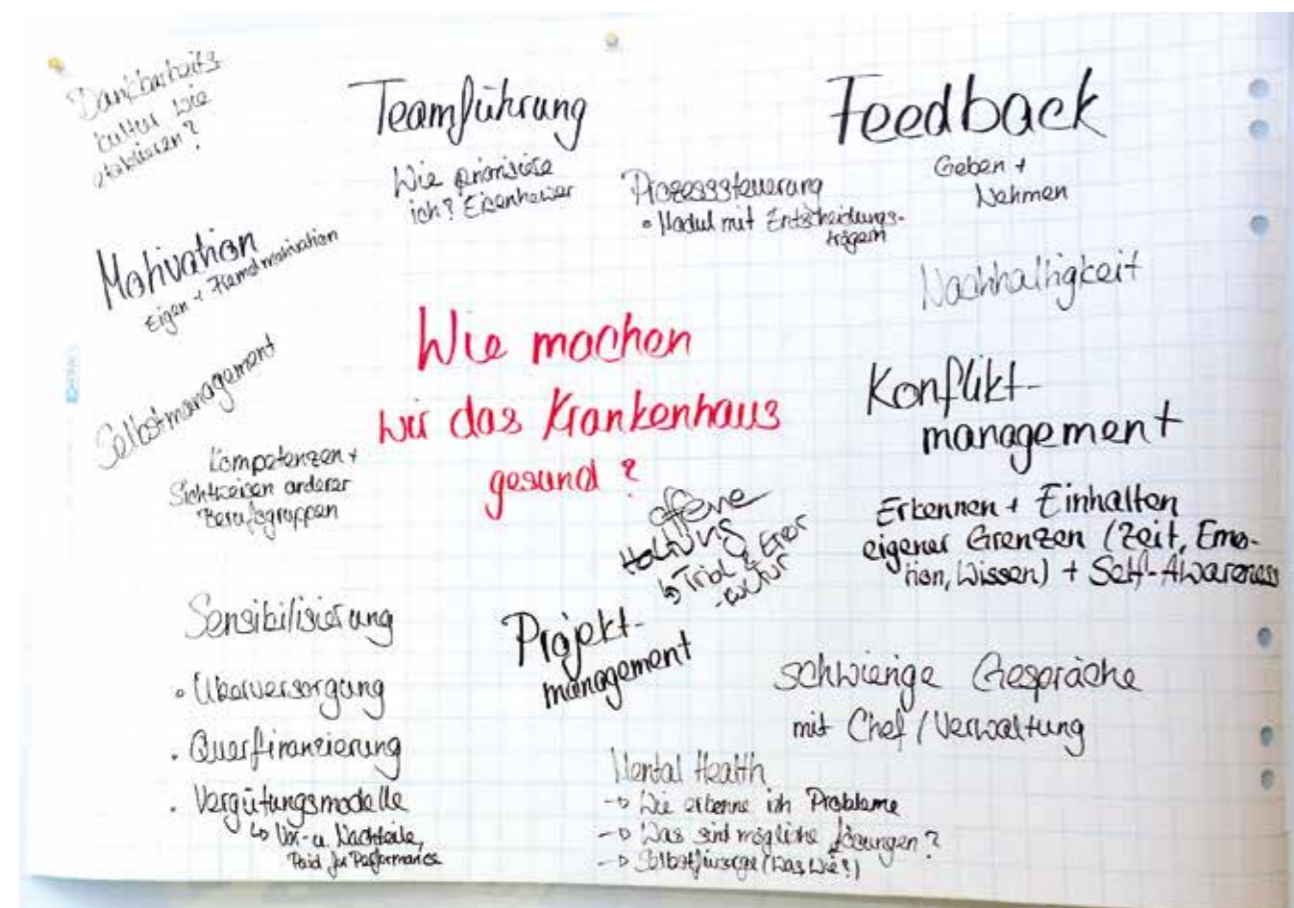 Dankbarkeits
kultur wie
etablieren?
Teamführung
Wie priorisiere
ich? Eisenhower
Prozesssteuerung
• Modul mit Entscheidungs-
trägern
Feedback
Geben +
Nehmen
Motivation
Eigen + Fremdmotivation
Nachhaltigkeit
Selbstmanagement
Wie machen
wir das Krankenhaus
gesund?
Konflikt-
management
Kompetenzen +
Sichtweisen anderer
Berufsgruppen
offene
Haltung
↳ Trial & Error
-cultur
Erkennen + Einhalten
eigener Grenzen (Zeit, Emo-
tion, Wissen) + Self-Awareness
Sensibilisierung
• Überversorgung
• Querfinanzierung
• Vergütungsmodelle
↳ Vor- u. Nachteile,
Paid for Performance
Projekt-
management
schwierige Gespräche
mit Chef / Verwaltung
Mental Health
→ Wie erkenne ich Probleme
→ Was sind mögliche Lösungen?
→ Selbstfürsorge (Was, Wie?)